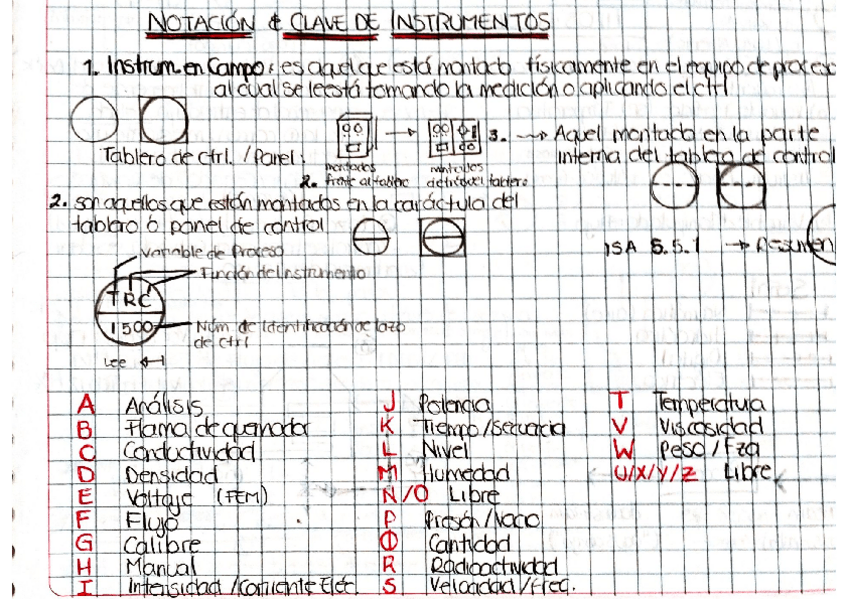 NOTACIÓN & CLAVE DE INSTRUMENTOS
1. Instrum. en Campo: es aquel que está montado físicamente en el equipo de proceso
al cual se le está tomando la medición o aplicando el ctrl
Tablero de ctrl. / Panel:
montados
2. frente al tablero
montados
detrás del tablero
3. → Aquel montado en la parte
interna del tablero de control
2. son aquellos que están montados en la carátula del
tablero o panel de control
ISA S.5.1 → Resumen
Variable de Proceso
Función del Instrumento
TRC
1500
Núm de Identificación de lazo
de ctrl
Lee
A Análisis
B Flama de quemador
C Conductividad
D Densidad
E Voltaje (FEM)
F Flujo
G Calibre
H Manual
I Intensidad /Corriente Eléc.
J Potencia
K Tiempo/Secuencia
L Nivel
M Humedad
N/O Libre
P Presión/Vacío
Q Cantidad
R Radioactividad
S Velocidad/Frec.
T Temperatura
V Viscosidad
W Peso/Fza
U/X/Y/Z Libre